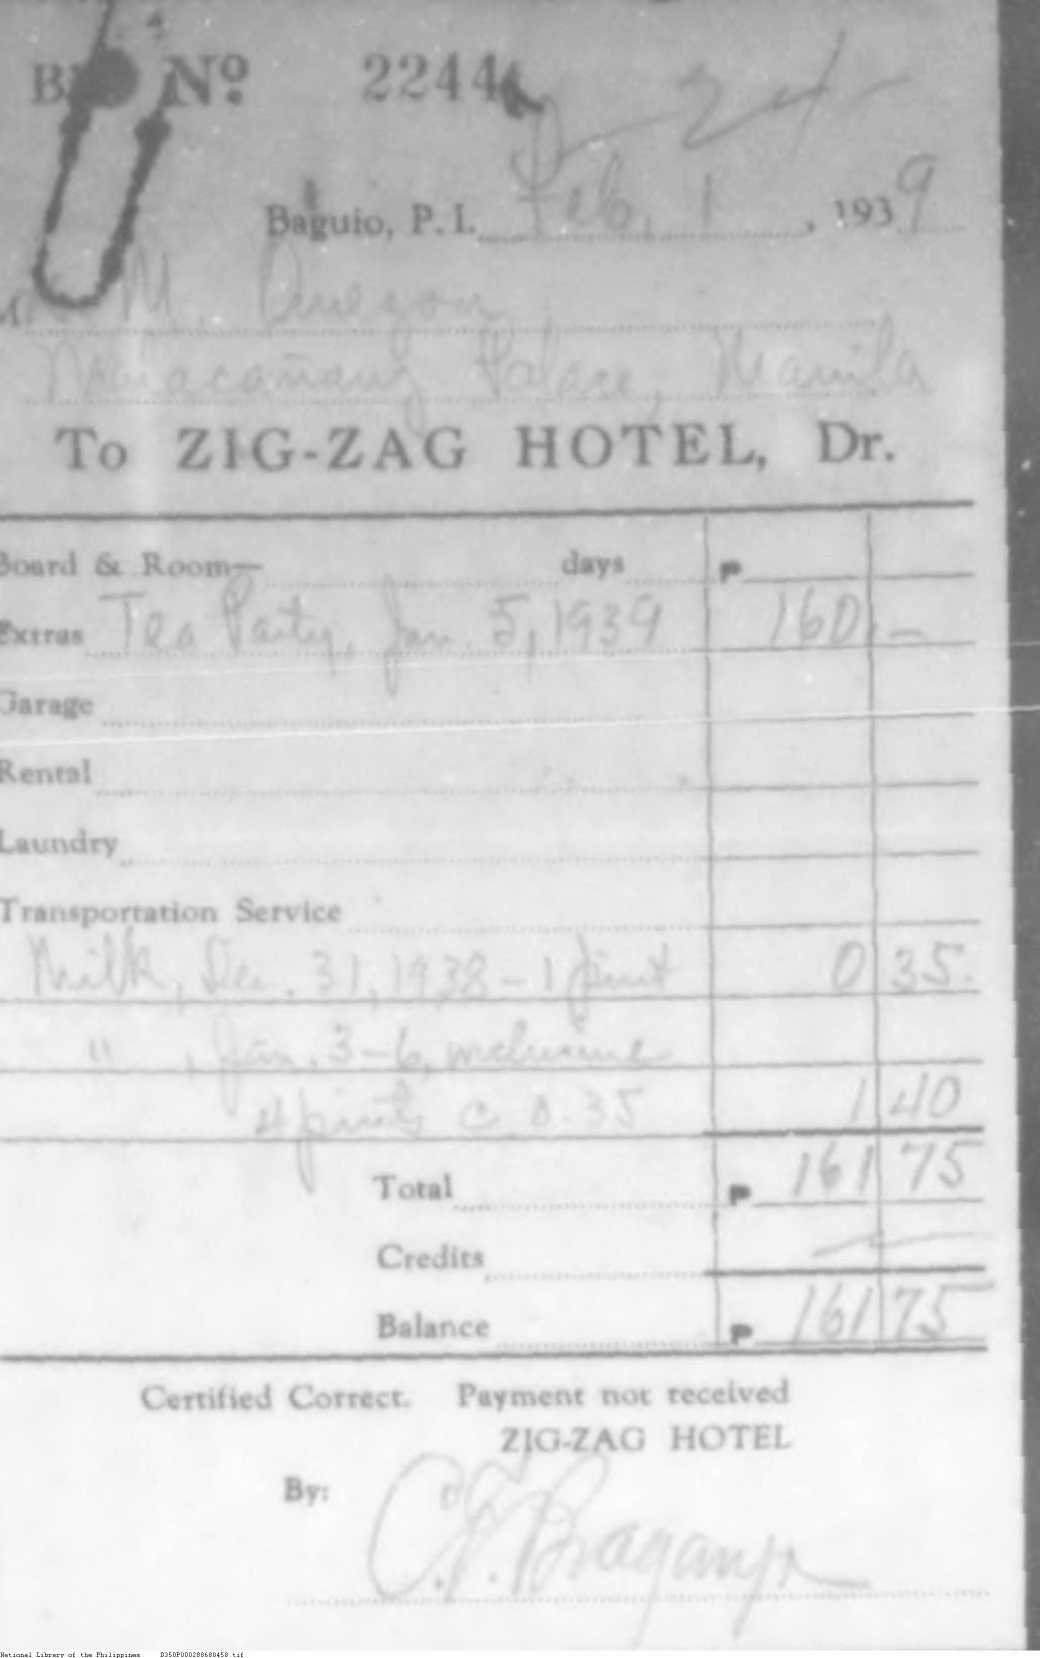 No. 2244
2-24-
Baguio, P. I. Feb. 1, 1939
M. Quezon
Malacañang Palace, Manila
To ZIG-ZAG HOTEL, Dr.
Board & Room— days ₱
Extras Tea Party, Jan. 5, 1939 160 —
Garage
Rental
Laundry
Transportation Service
Milk, Dec. 31, 1938 – 1 pint 0 35.
" , Jan. 3–6, inclusive
4 pints @ 0.35 1 40
Total ₱ 161 75
Credits —
Balance ₱ 161 75
Certified Correct. Payment not received
ZIG-ZAG HOTEL
By:
National Library of the Philippines D350P000288680458.tif